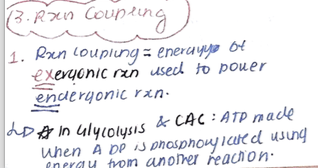 3. Rxn Coupling
1. Rxn Coupling = energy of
exergonic rxn used to power
endergonic rxn.
↳ In Glycolysis & CAC: ATP made
when ADP is phosphorylated using
energy from another reaction.